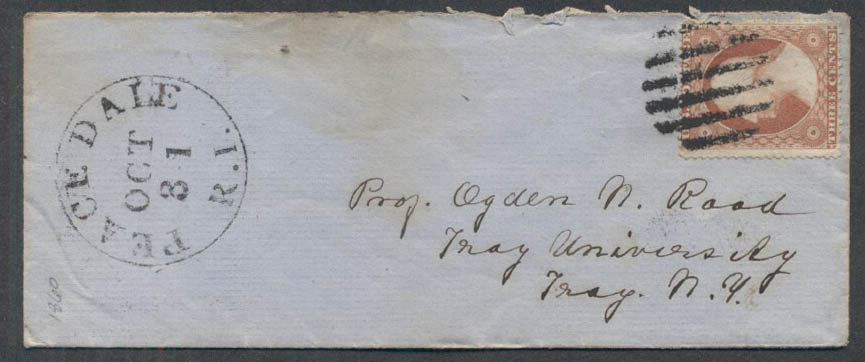 PEACE DALE R.I.
OCT
31
THREE CENTS
Prof. Ogden N. Rood
Troy University
Troy. N.Y.
1860